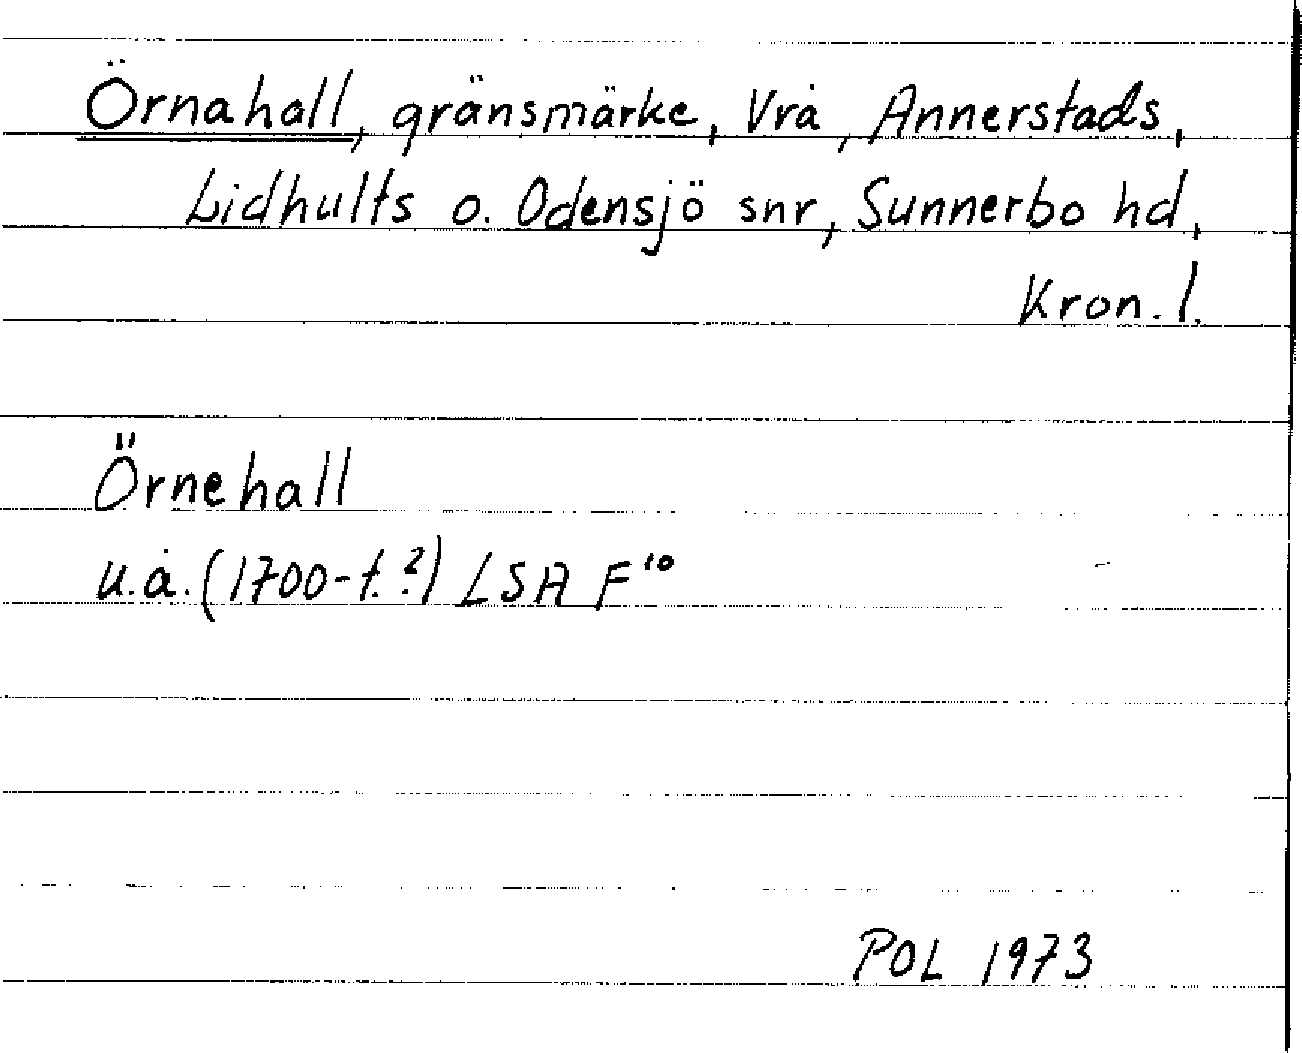 Örnahall, gränsmärke, Vrå, Annerstads,
Lidhults o. Odensjö snr, Sunnerbo hd,
Kron. l.
Örnehall
u.å. (1700-t.?) LSA F¹⁰
POL 1973